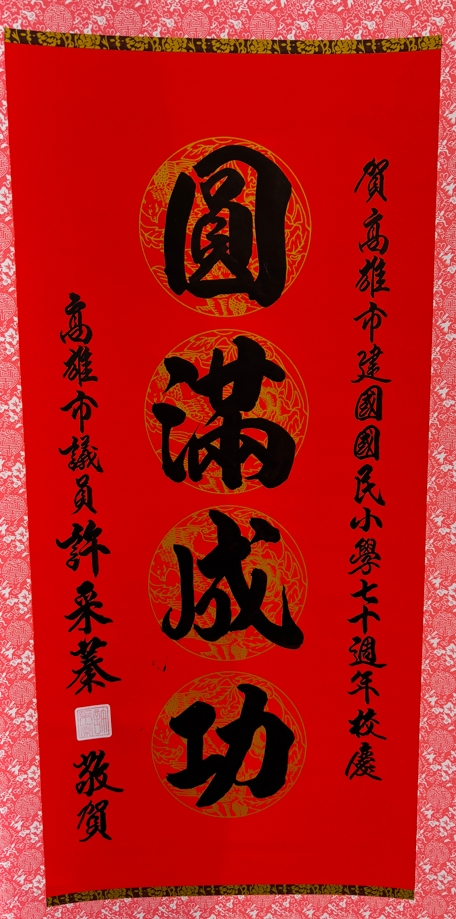 賀高雄市建國國民小學七十週年校慶
圓滿成功
高雄市議員許采蓁
敬賀